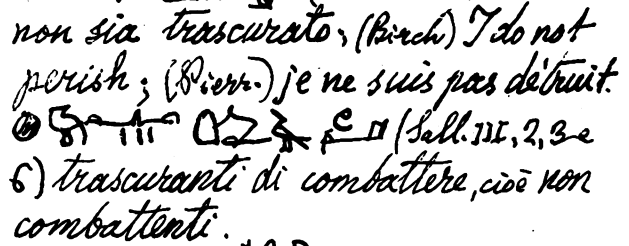 non sia trascurato; (Birch) I do not
perish; (Pierr.) je ne suis pas détruit.
(Sall. III, 2, 3 e
6) trascuranti di combattere, cioè non
combattenti.